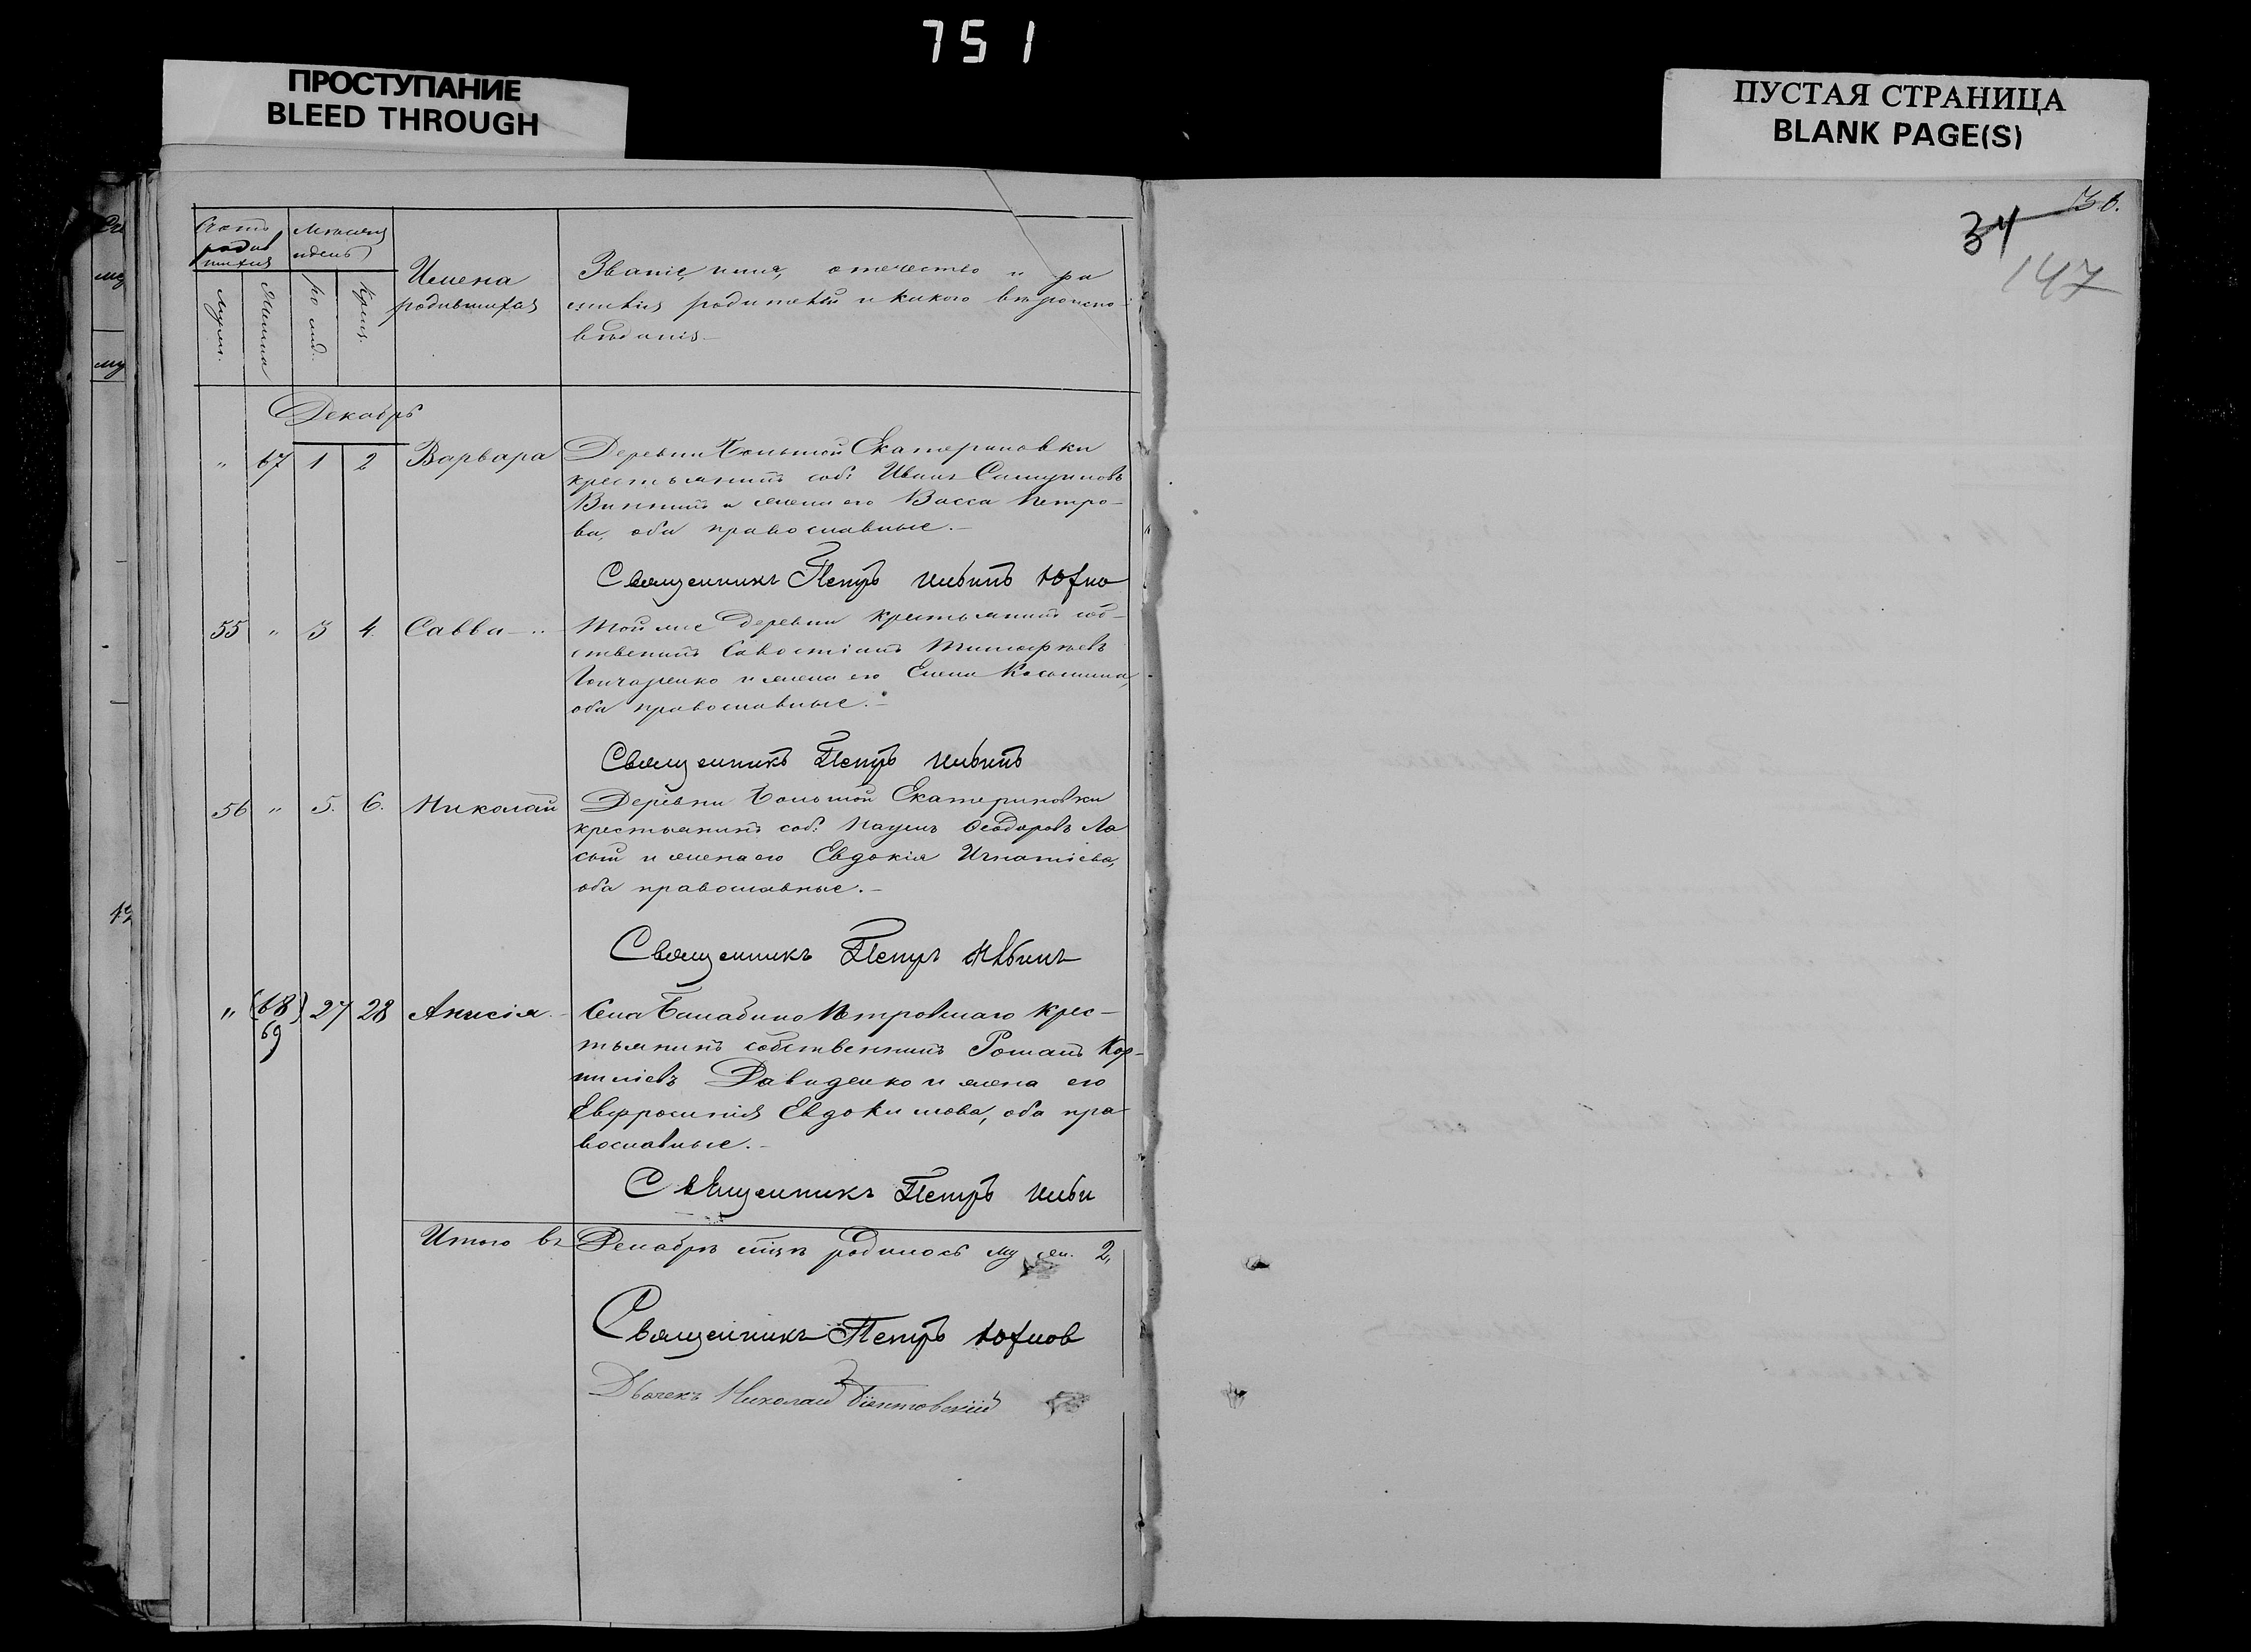 751
ПРОСТУПАНИЕ
BLEED THROUGH
ПУСТАЯ СТРАНИЦА
BLANK PAGE(S)
36.
34
147
Счетъ родив шихся
Мѣсяцъ и день
Имена родившихся
Званіе, имя, отечество и фа
милія родителей и какого вѣроиспо-
вѣданія
Мужск.
Женска
рожд.
крещ.
Декабрь
" 67 1 2 Варвара Деревни Большой Екатериновки
крестьянинъ соб: Иванъ
и жена его Васса Петро-
ва, оба православные.-
Священникъ Петръ
55 " 3 4. Савва Той же деревни крестьянинъ соб-
ственникъ Савостіанъ Тимофѣевъ
Гончаренко и жена его Елена Косьмина,
оба православные.-
Священникъ Петръ
56 " 5. 6. Николай Деревни Большой Екатериновки
крестьянинъ соб: Наумъ Ѳеодоровъ Ло
сый и жена его Евдокія Игнатіева,
оба православные.-
Священникъ Петръ
" (68) 27 28 Анисія Села Балабино Петровскаго крес-
69
тьянинъ собственникъ Романъ Кор-
ниліевъ Давиденко и жена его
Евфросинія Евдокимова, оба пра
вославные.-
Священникъ Петръ
Итого въ Декабрѣ мцѣ родилось му 2,
Священникъ Петръ
Дьячекъ Николай